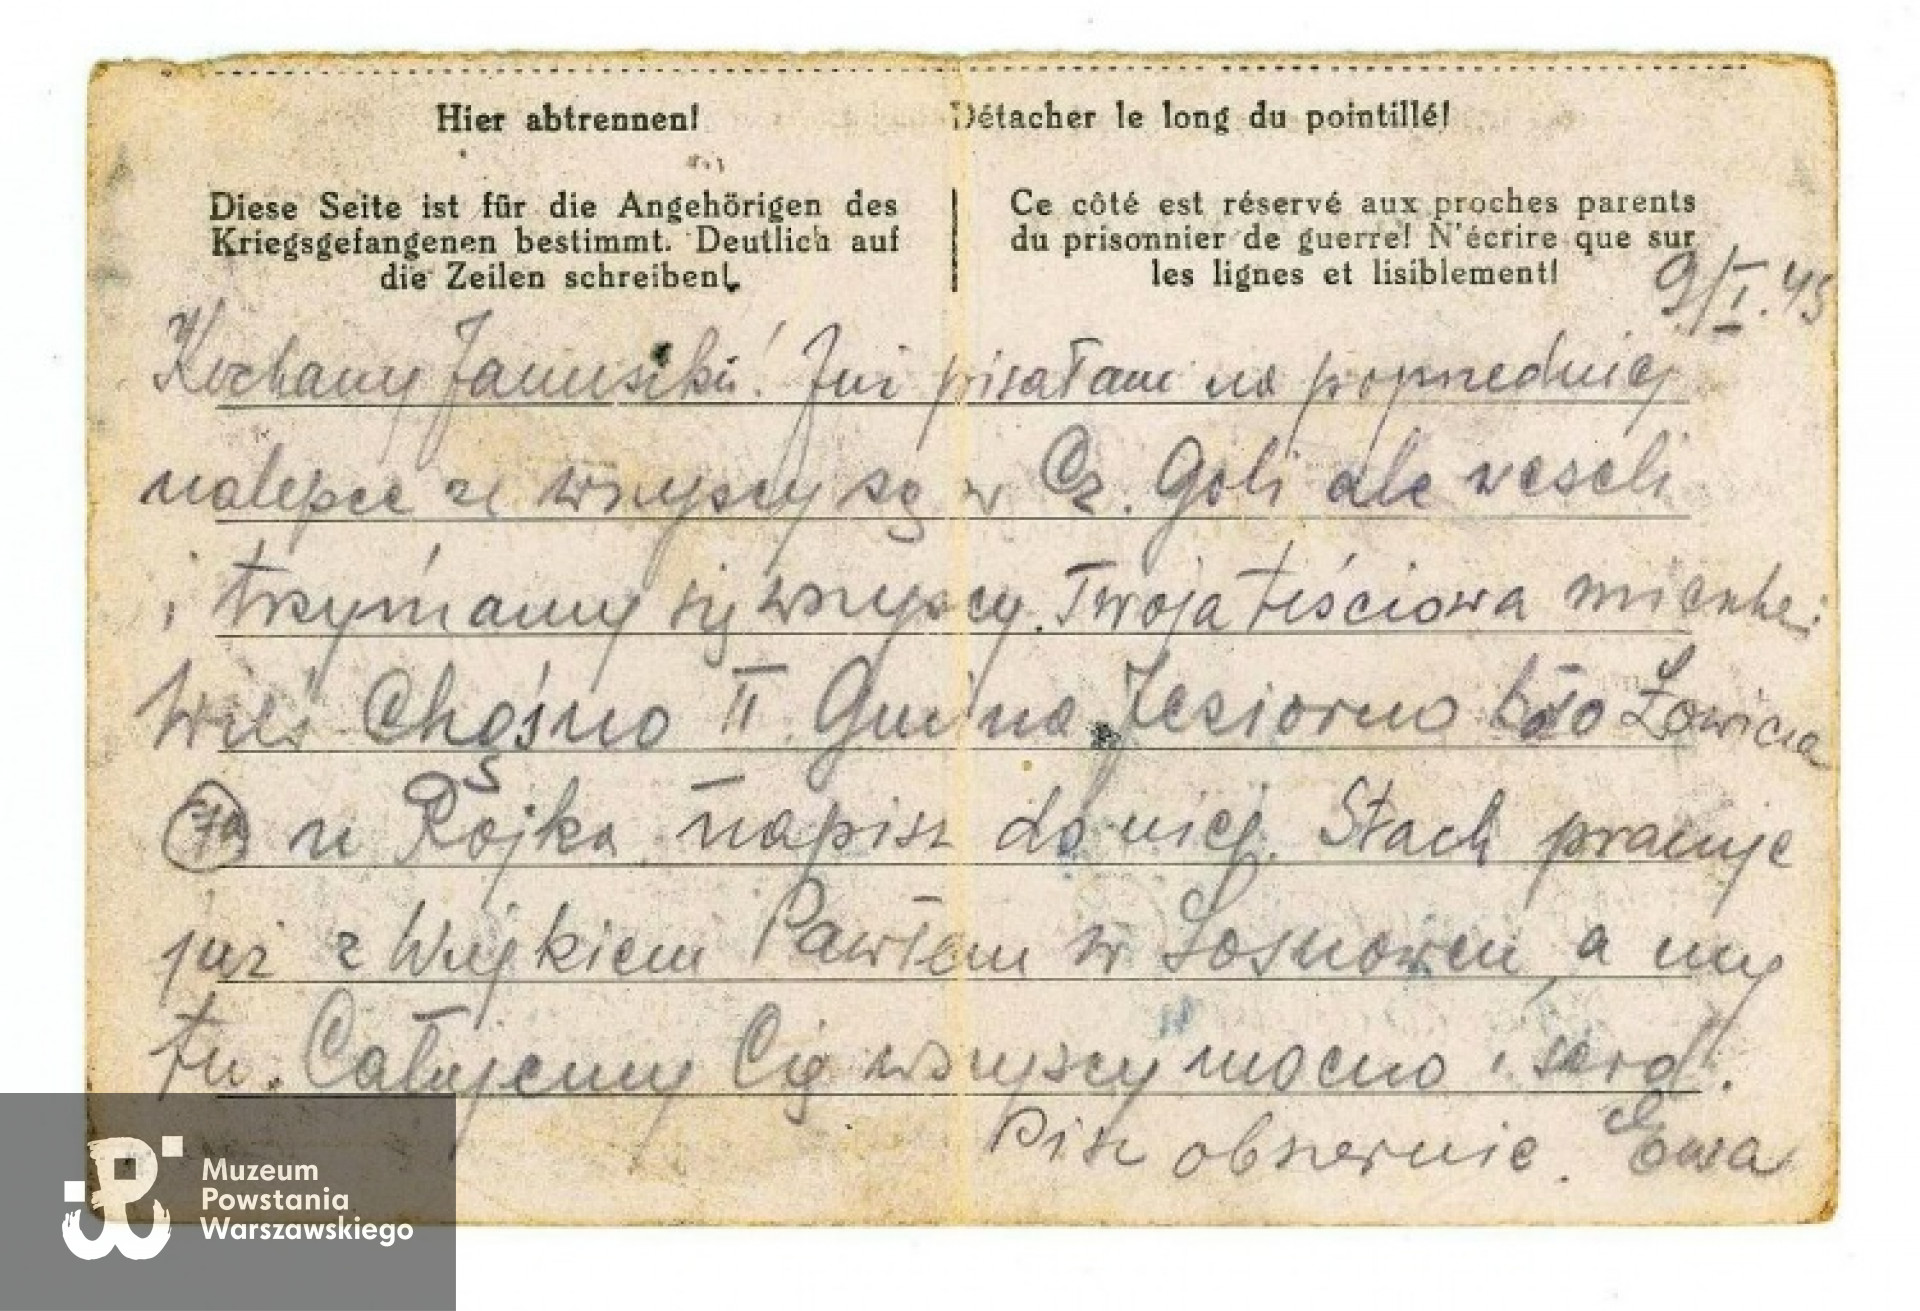 Hier abtrennen!
Détacher le long du pointillé!
Diese Seite ist für die Angehörigen des
Kriegsgefangenen bestimmt. Deutlich auf
die Zeilen schreiben!
Ce côté est réservé aux proches parents
du prisonnier de guerre! N'écrire que sur
les lignes et lisiblement!
9/I.45
Kochany Januszku! Już pisałam na poprzedniej
nalepce że wszyscy są w Cz. Goli ale weseli
i trzymamy się wszyscy. Twoja teściowa mieszka
Wieś Chąśno II. Gmina Jeziorno koło Łowicza
u Rojka napisz do niej. Stach pracuje
już z Wujkiem Pawłem w Sosnowcu, a my
tu. Całujemy Cię wszyscy mocno i serd.
Pisz obszernie. Ewa
Muzeum
Powstania
Warszawskiego